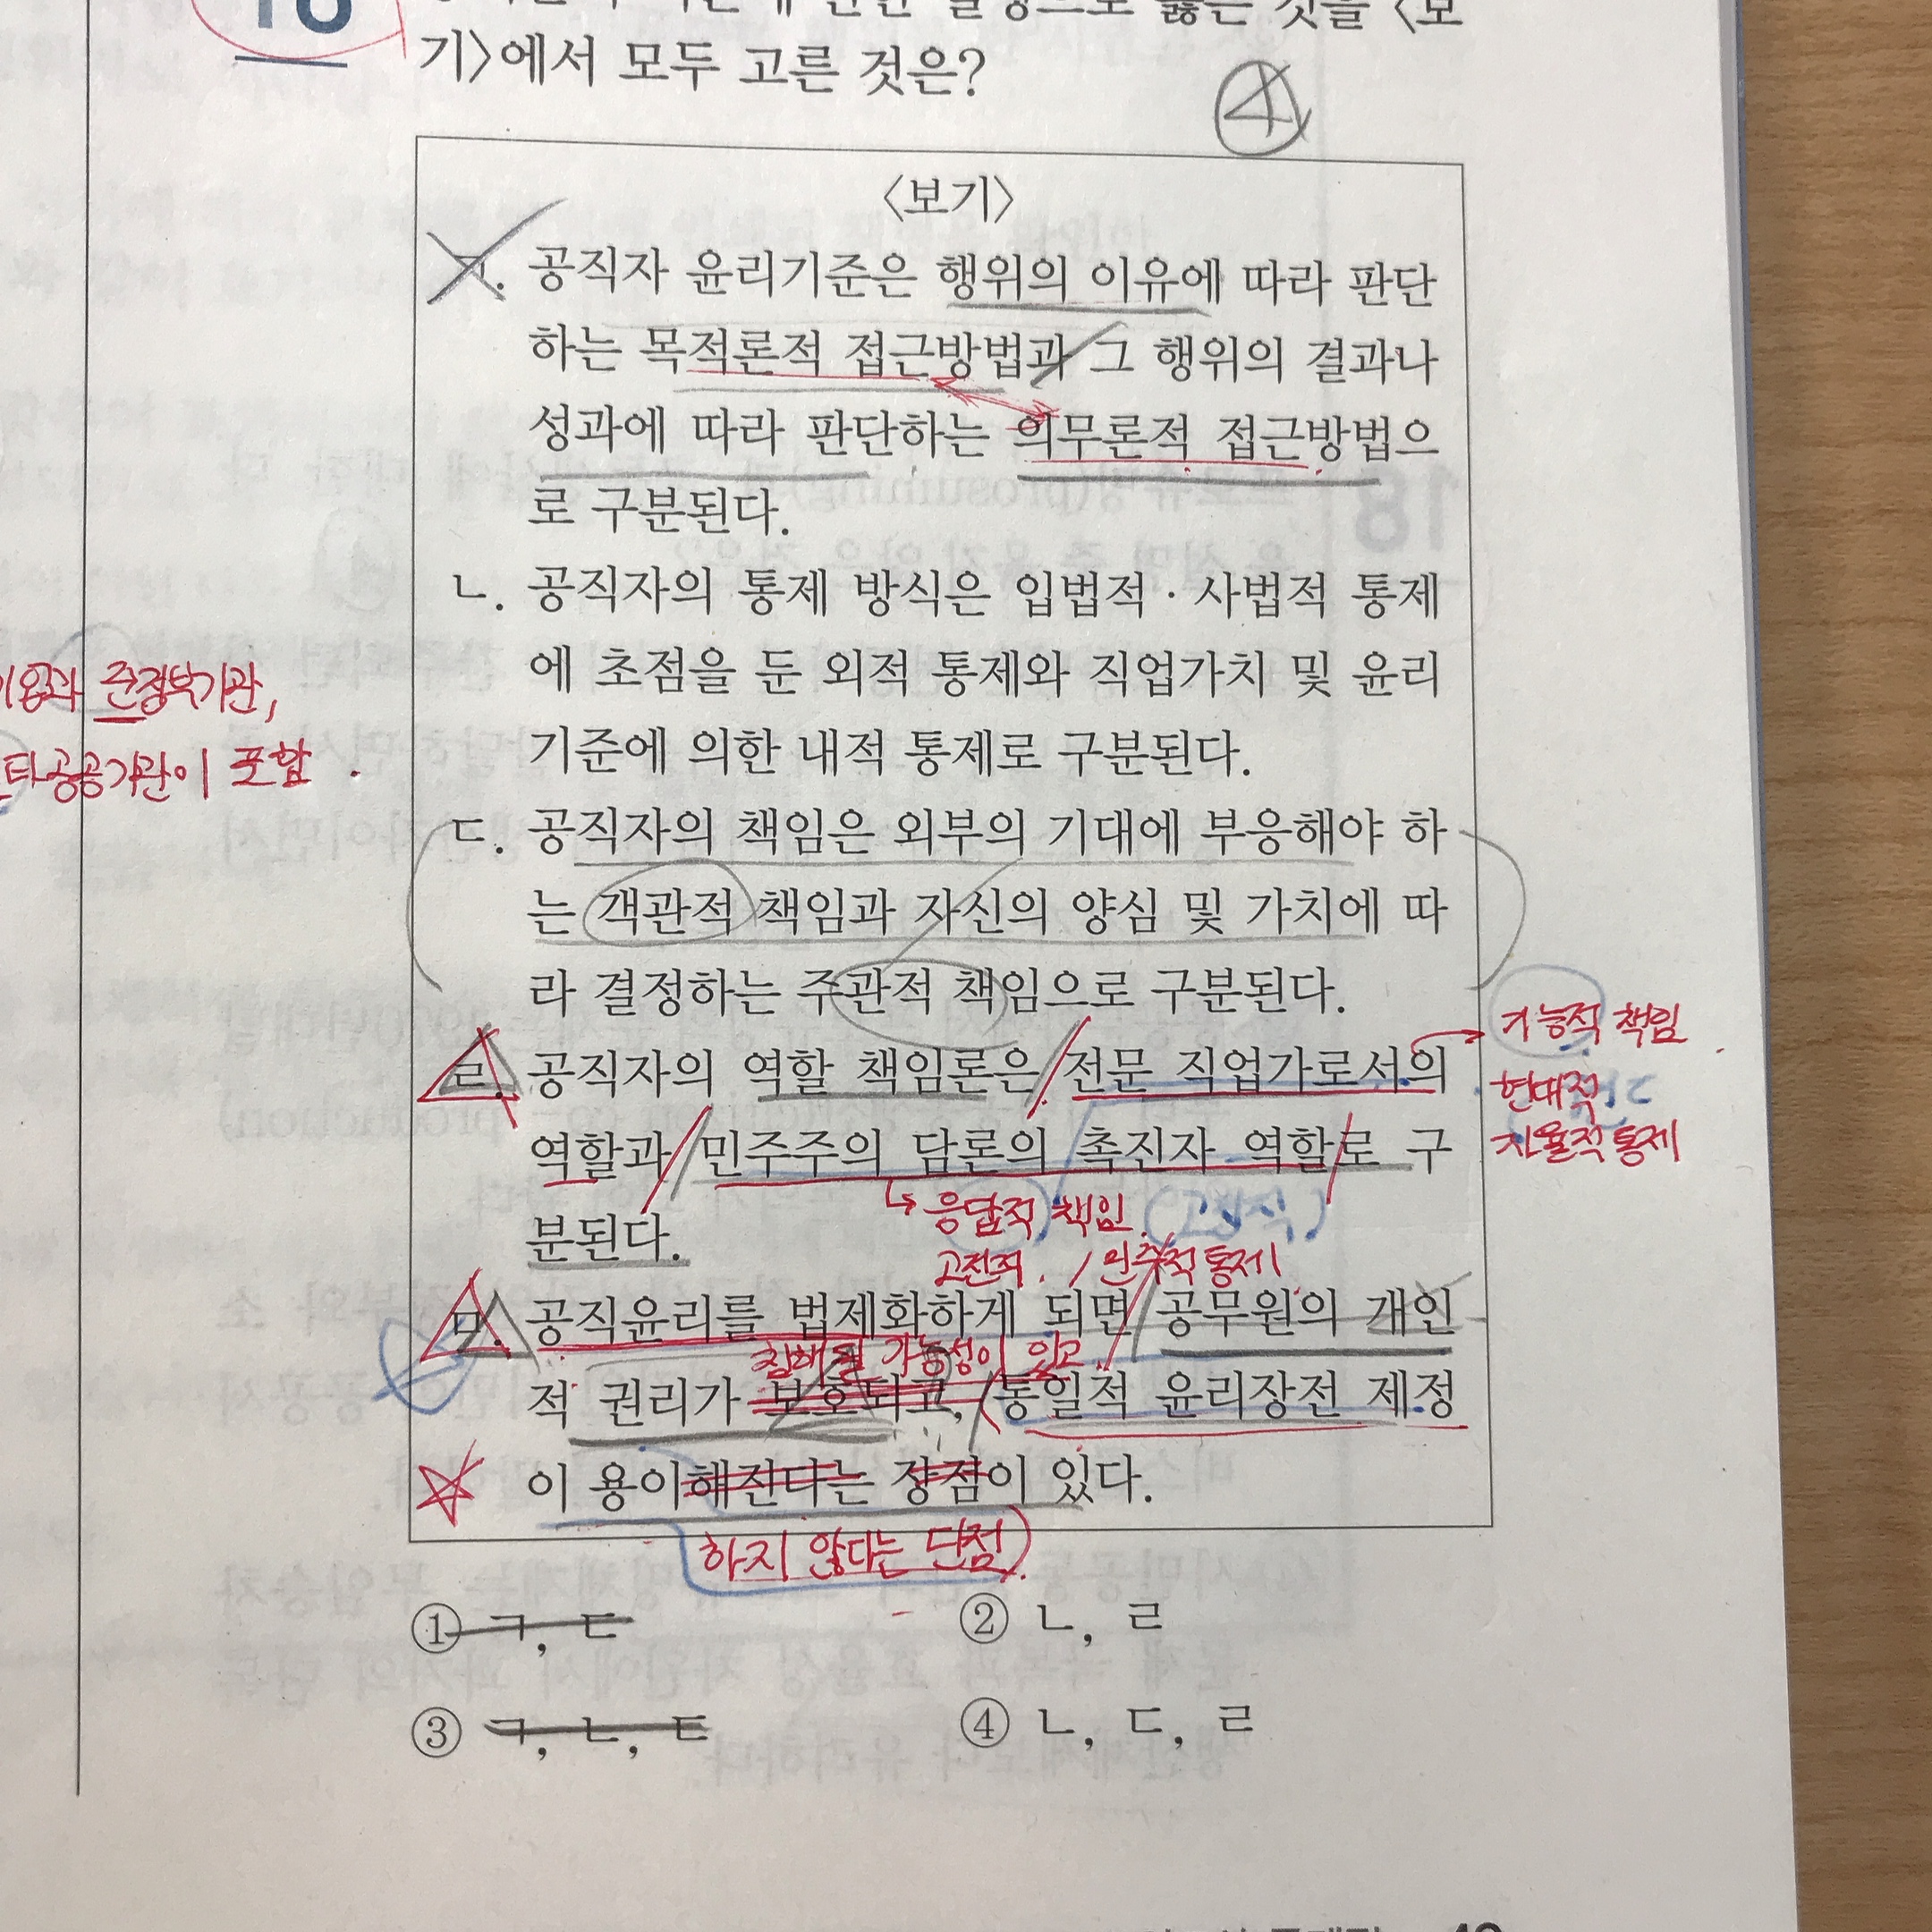 16
기>에서 모두 고른 것은?
④
<보기>
ㄱ. 공직자 윤리기준은 행위의 이유에 따라 판단
하는 목적론적 접근방법과 그 행위의 결과나
성과에 따라 판단하는 의무론적 접근방법으
로 구분된다.
ㄴ. 공직자의 통제 방식은 입법적·사법적 통제
에 초점을 둔 외적 통제와 직업가치 및 윤리
준정부기관,
기준에 의한 내적 통제로 구분된다.
타공공기관이 포함.
ㄷ. 공직자의 책임은 외부의 기대에 부응해야 하
는 객관적 책임과 자신의 양심 및 가치에 따
라 결정하는 주관적 책임으로 구분된다.
기능적 책임
ㄹ. 공직자의 역할 책임론은 전문 직업가로서의
현대적
역할과 민주주의 담론의 촉진자 역할로 구
자율적 통제
응답적 책임
분된다.
고전적 / 민주적통제
ㅁ. 공직윤리를 법제화하게 되면 공무원의 개인
침해될 가능성이 있고
적 권리가 보호되고, 통일적 윤리장전 제정
이 용이해진다는 장점이 있다.
하지 않다는 단점
① ㄱ, ㄷ
② ㄴ, ㄹ
③ ㄱ, ㄴ, ㄷ
④ ㄴ, ㄷ, ㄹ